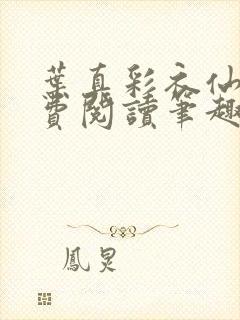 葉真彩衣仙
費閱讀筆趣
鳳炅